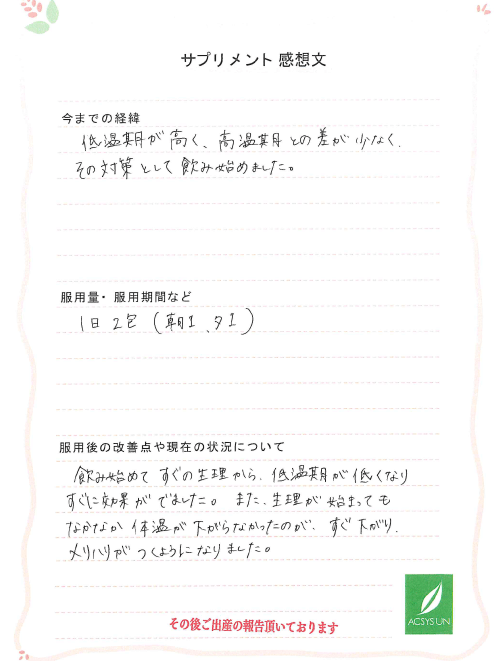 サプリメント 感想文
今までの経緯
低温期が高く、高温期との差が少なく、
その対策として飲み始めました。
服用量・服用期間など
1日 2包 (朝1、夕1)
服用後の改善点や現在の状況について
飲み始めて すぐの生理から、低温期が低くなり
すぐに効果がでました。また、生理が始まっても
なかなか 体温が下がらなかったのが、すぐ下がり、
メリハリが つくようになりました。
その後ご出産の報告頂いております
ACSYSUN